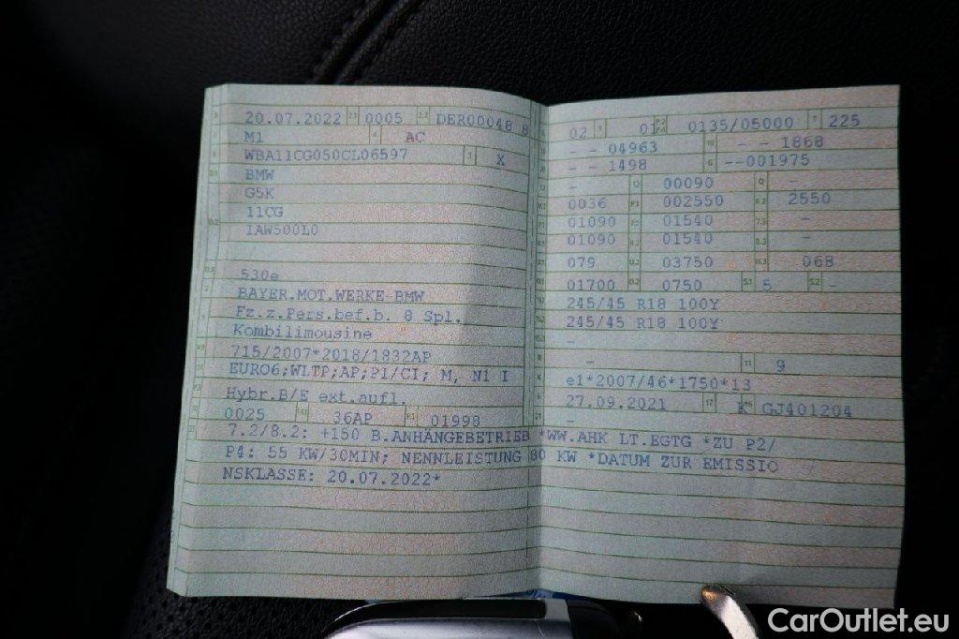 20.07.2022 0005 DER00048 8
M1 AC
WBA11CG050CL06597 X
BMW
G5K
11CG
1AW500L0
530e
BAYER.MOT.WERKE-BMW
Fz.z.Pers.bef.b. 8 Spl.
Kombilimousine
715/2007*2018/1832AP
EURO6;WLTP;AP;PI/CI; M, N1 I
Hybr.B/E ext.aufl.
0025 36AP 01998
02 01 0135/05000 225
- - 04963 - - 1868
- - 1498 --001975
- 00090 -
0036 002550 2550
01090 01540 -
01090 01540 -
079 03750 068
01700 0750 5 -
245/45 R18 100Y
245/45 R18 100Y
-
- 9
e1*2007/46*1750*13
27.09.2021 K GJ401204
-
7.2/8.2: +150 B.ANHÄNGEBETRIEB *WW.AHK LT.EGTG *ZU P2/
P4: 55 KW/30MIN; NENNLEISTUNG 80 KW *DATUM ZUR EMISSIO
NSKLASSE: 20.07.2022*
CarOutlet.eu